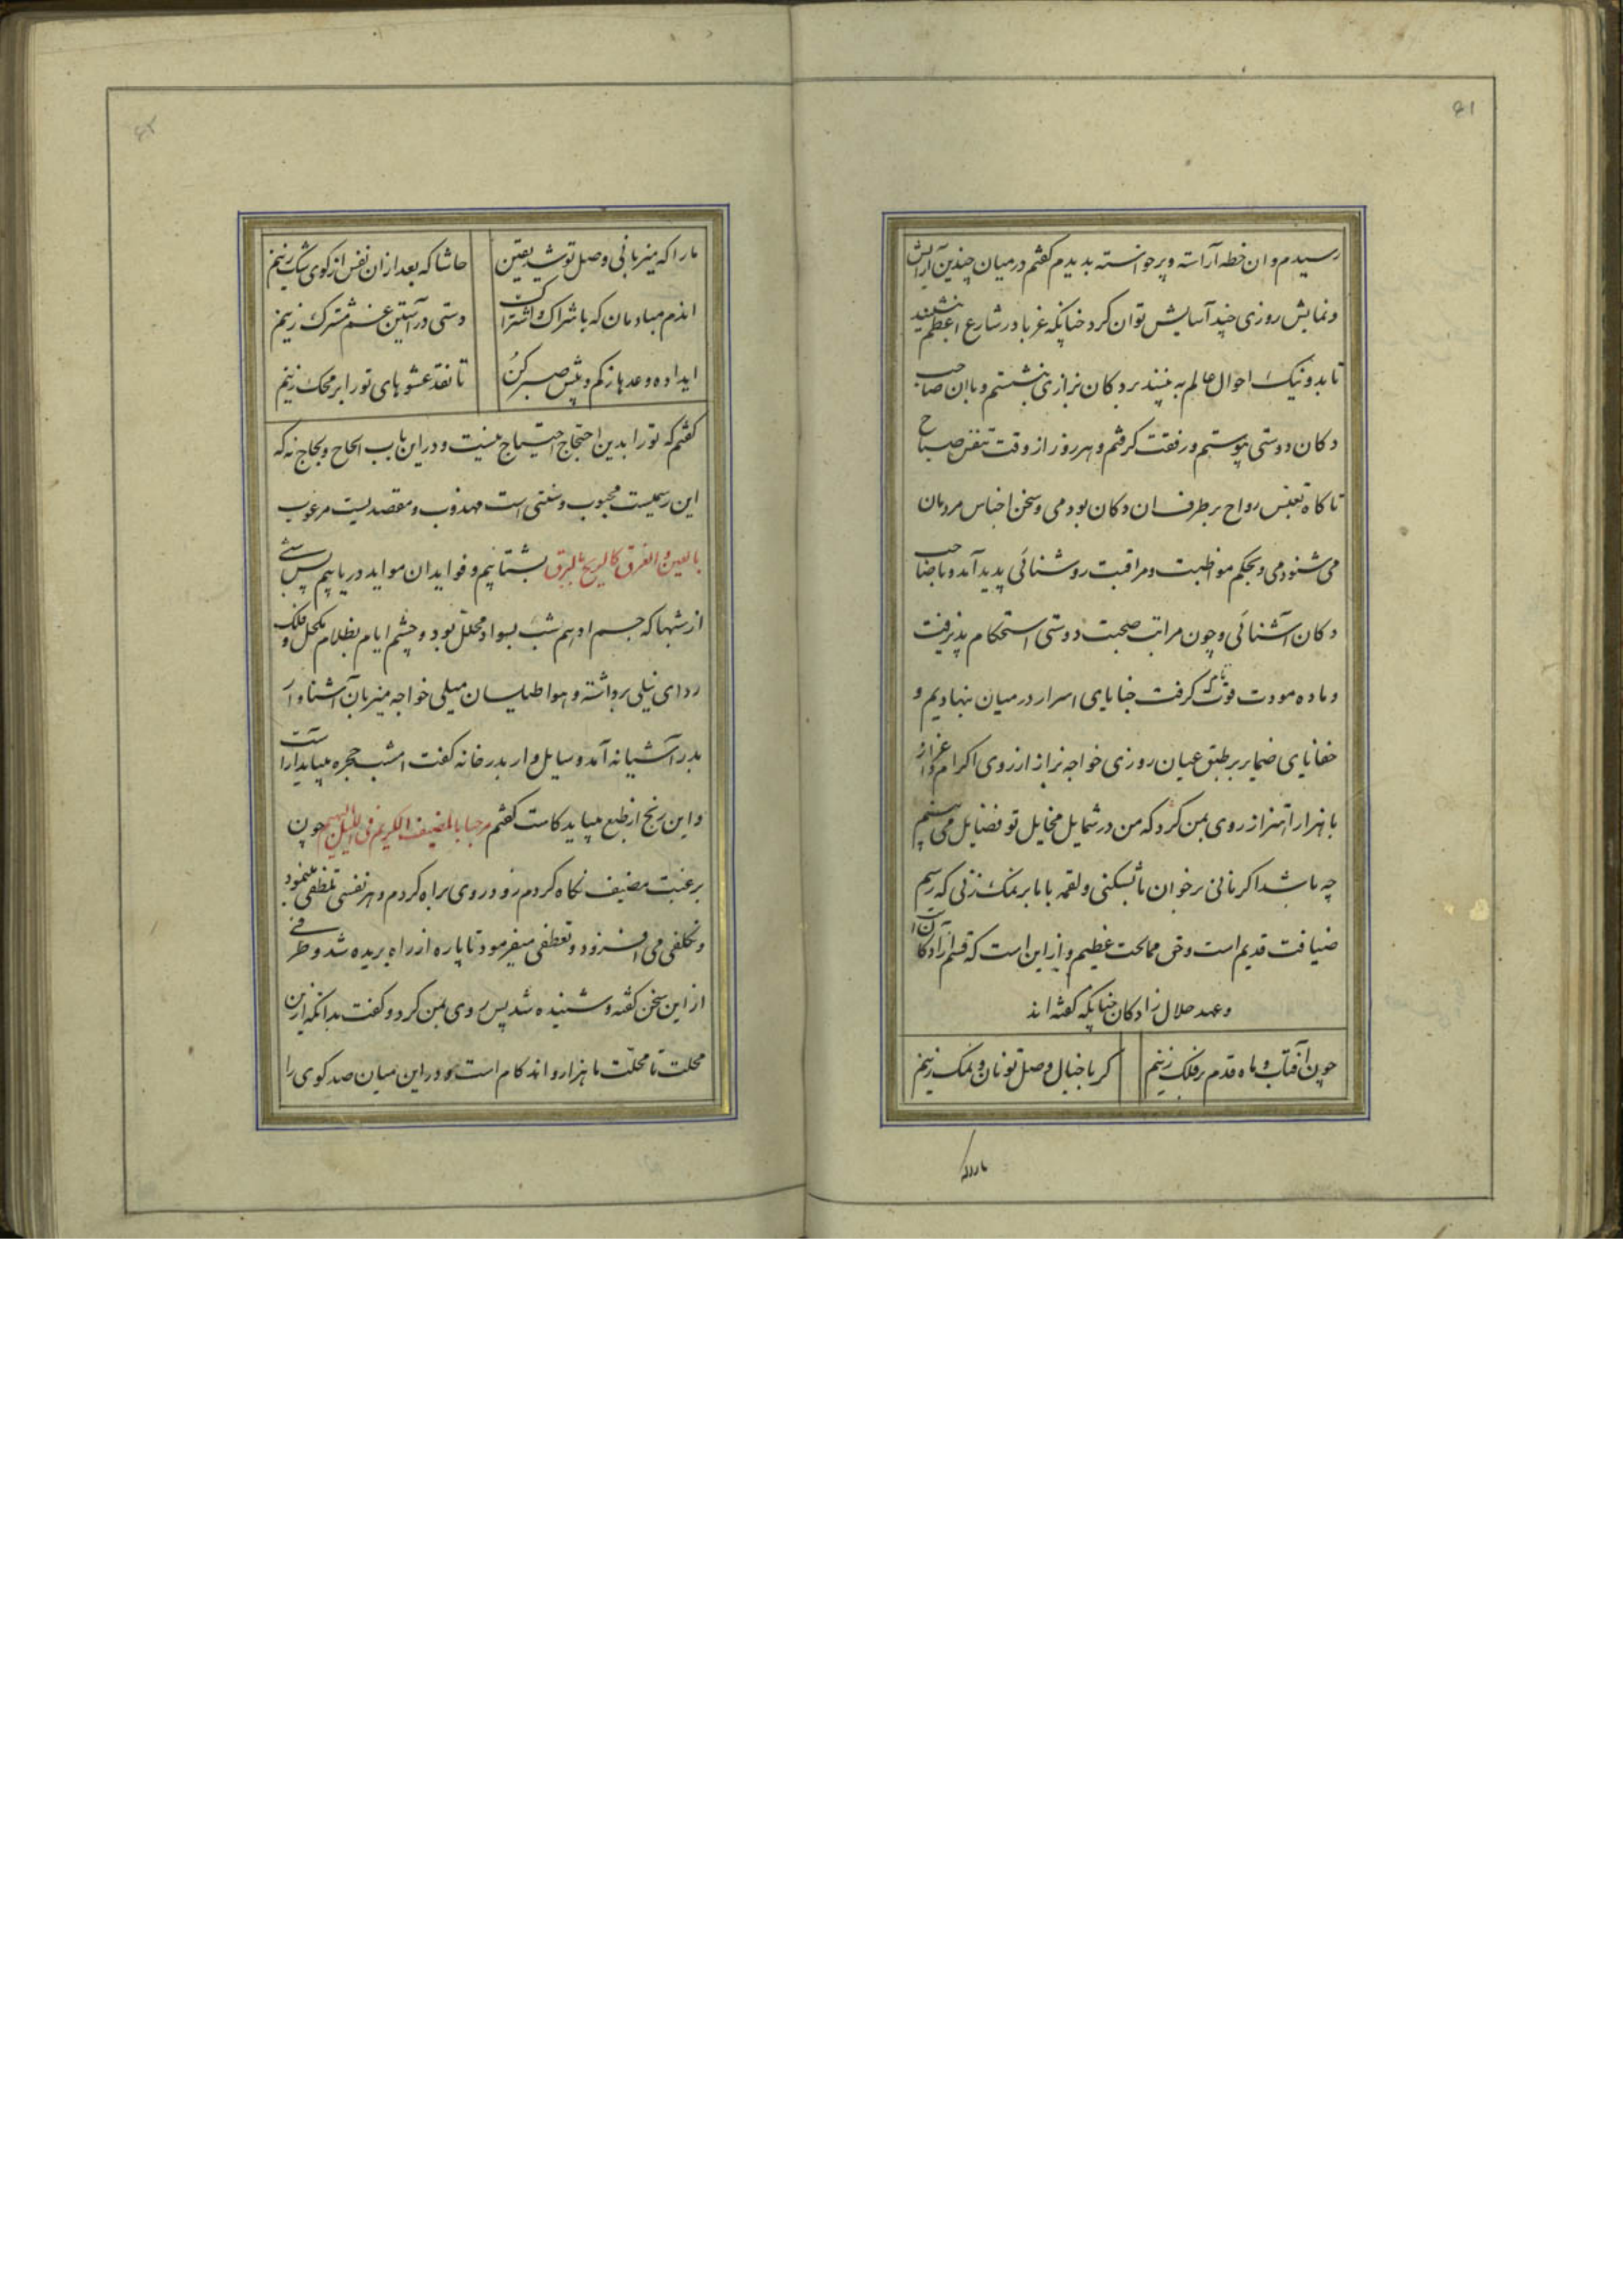 ۶۱
رسیدم و ان خطه آراسته و پرخواسته بدیدم کفتم درمیان چندین آرایش
و نمایش روزی چند آسایش توان کرد چنانکه غربا در شارع اعظم نشینند
تا بد و نیک احوال عالم به بینند بر دکان بزازی بنشستم و با ان صاحب
دکان دوستی پیوستم و رفقت کرفتم و هر روز از وقت تنفس صباح
تا کاه تعبس رواح بر طرف ان دکان بودمی و سخن اجناس مردمان
می شنودمی و بحکم مواظبت و مراقبت روشنائی پدید آمد و با صاحب
دکان آشنائی و چون مراتب صحبت دوستی استحکام پذیرفت
و ماده مودت قوت کرفت خبایای اسرار در میان بنهادیم و
خفایای ضمایر بر طبق عیان روزی خواجه بزاز از روی اکرام و اعزاز
با هزار اهتزاز روی بمن کرد که من در شمایل مخایل تو فضایل می بینم
چه باشد اکر نانی بر خوان ما بشکنی و لقمه با ما بر نمک زنی که رسم
ضیافت قدیم است و حق ممالحت عظیم و از این است که قسم آزادکان
و عهد حلال زادکان چنانکه کفته اند
چون آفتاب و ماه قدم بر فلک زنیم کر با خیال وصل تو نان و نمک زنیم
ما را که
۶۲
ما را که میزبانی وصل تو شد یقین حاشا که بعد از ان نفس از کوی شک زنیم
اندم مبادمان که باشراک و اشتراک دستی در آستین غم مشترک زنیم
ای داده وعدها زکم و بیش صبر کن تا نقد عشوهای تو را بر محک زنیم
کفتم که تو را بدین احتجاج احتیاج نیست و در این باب الحاح و لجاج نه که
این رسمیست محبوب و سنتی است مهذوب و مقصدیست مرغوب
بالعین و الفرق کالریح و البرق بشتابیم و فواید ان مواید دریابیم پس شبی
از شبها که جسم ادهم شب بسواد محلل بود و چشم ایام بظلام مکحل و فلک
ردای نیلی برداشته و هوا طیلسان میلی خواجه میزبان آشنا وار
بدر آشیانه آمد و سایل وار بدر خانه کفت امشب حجره میباید آراست
و این رنج از طبع میباید کاست کفتم مرحبا بالمضیف الکریم فی اللیل البهیم چون
برغبت مضیف نکاه کردم زود روی براه کردم و هر نفسی تلطفی مینمود
و تکلفی می افزود و تعطفی میفرمود تا پاره از راه بریده شد و طرفی
از این سخن کفته و شنیده شد پس روی بمن کرد و کفت بدانکه از ین
محلت تا محلت ما هزار و اند کام است و در این میان صد کوی را